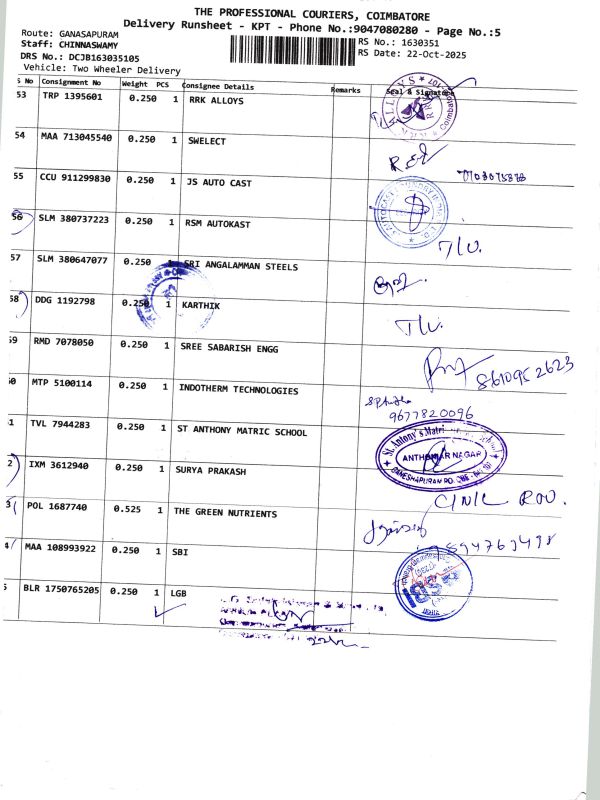 THE PROFESSIONAL COURIERS, COIMBATORE
Delivery Runsheet - KPT - Phone No.:9047080280 - Page No.:5
Route: GANASAPURAM
RS No.: 1630351
Staff: CHINNASWAMY
RS Date: 22-Oct-2025
DRS No.: DCJB163035105
Vehicle: Two Wheeler Delivery
S No Consignment No Weight PCS Consignee Details Remarks Seal & Signature
53 TRP 1395601 0.250 1 RRK ALLOYS
54 MAA 713045540 0.250 1 SWELECT
55 CCU 911299830 0.250 1 JS AUTO CAST
56 SLM 380737223 0.250 1 RSM AUTOKAST
57 SLM 380647077 0.250 1 SRI ANGALAMMAN STEELS
58 DDG 1192798 0.250 1 KARTHIK
59 RMD 7078050 0.250 1 SREE SABARISH ENGG
8610952623
0 MTP 5100114 0.250 1 INDOTHERM TECHNOLOGIES
9677820096
1 TVL 7944283 0.250 1 ST ANTHONY MATRIC SCHOOL
St. Antony's Matri School
ANTHONIAR NAGAR
GANESHAPURAM PO, CBE
2 IXM 3612940 0.250 1 SURYA PRAKASH
3 POL 1687740 0.525 1 THE GREEN NUTRIENTS
4 MAA 108993922 0.250 1 SBI
5 BLR 1750765205 0.250 1 LGB